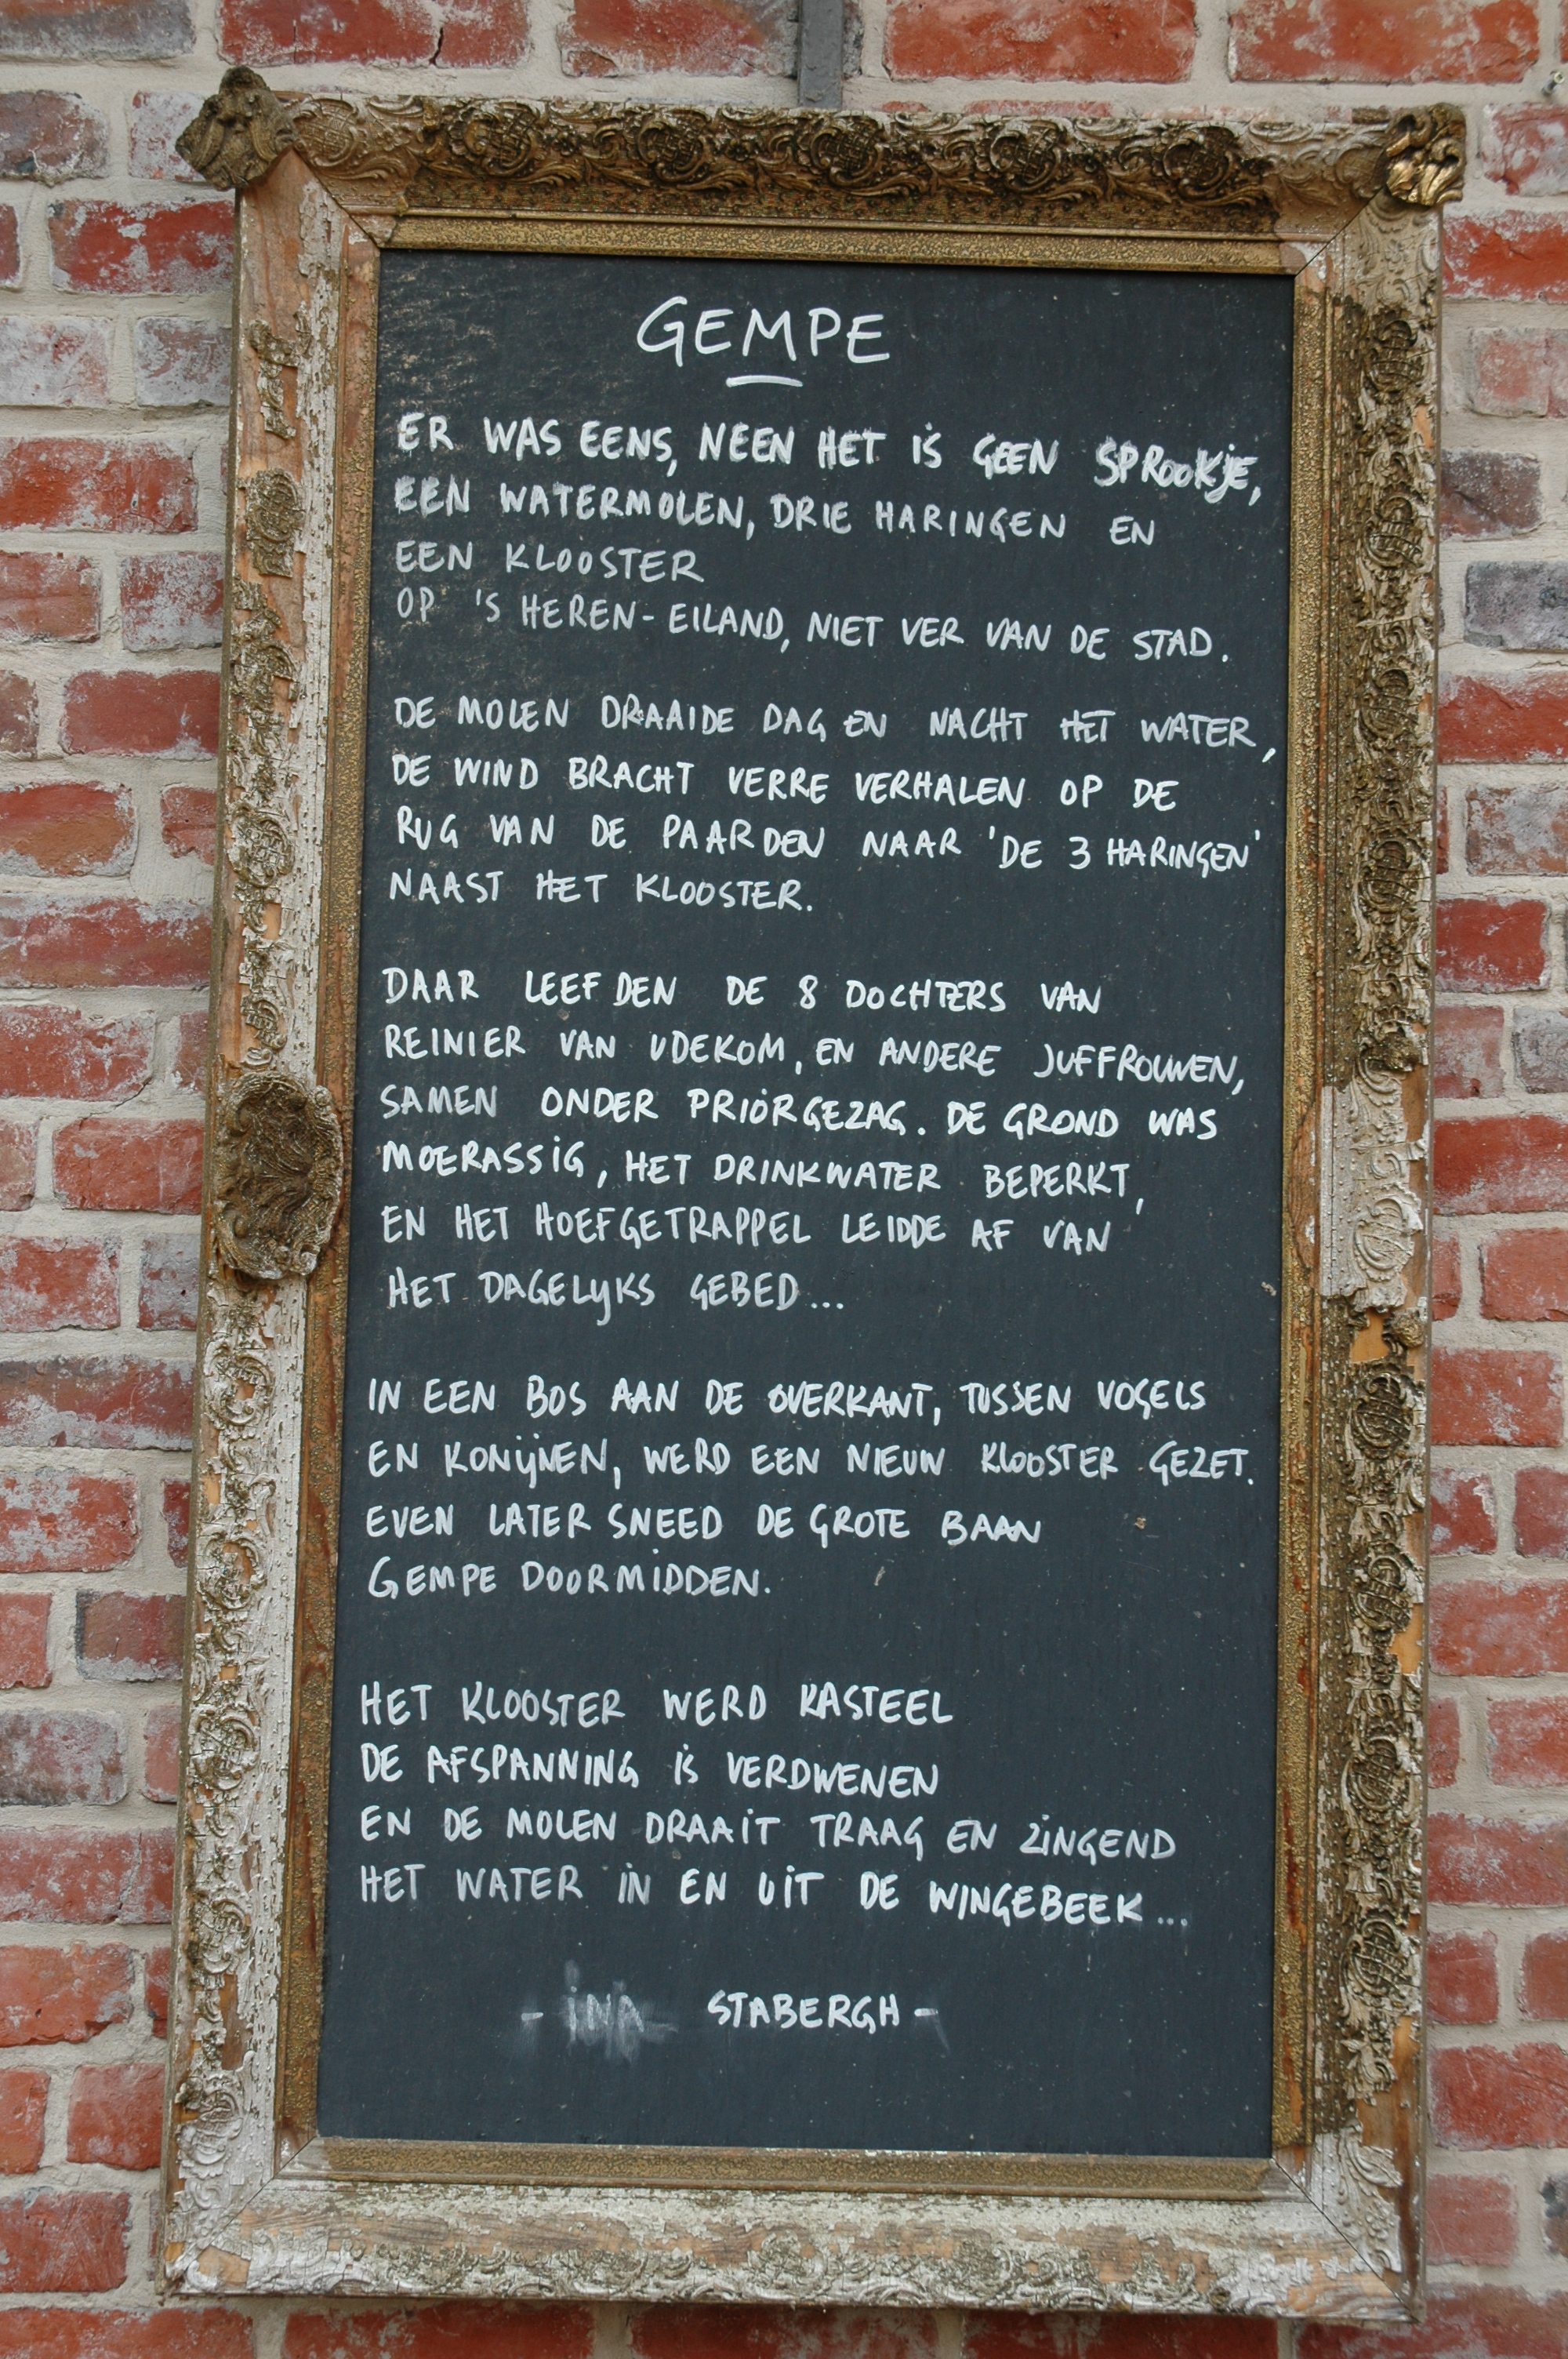 GEMPE
ER WAS EENS, NEEN HET IS GEEN SPROOKJE,
EEN WATERMOLEN, DRIE HARINGEN EN
EEN KLOOSTER
OP 'S HEREN-EILAND, NIET VER VAN DE STAD.
DE MOLEN DRAAIDE DAG EN NACHT HET WATER,
DE WIND BRACHT VERRE VERHALEN OP DE
RUG VAN DE PAARDEN NAAR 'DE 3 HARINGEN'
NAAST HET KLOOSTER.
DAAR LEEFDEN DE 8 DOCHTERS VAN
REINIER VAN UDEKOM, EN ANDERE JUFFROUWEN,
SAMEN ONDER PRIORGEZAG. DE GROND WAS
MOERASSIG, HET DRINKWATER BEPERKT,
EN HET HOEFGETRAPPEL LEIDDE AF VAN
HET DAGELIJKS GEBED...
IN EEN BOS AAN DE OVERKANT, TUSSEN VOGELS
EN KONIJNEN, WERD EEN NIEUW KLOOSTER GEZET.
EVEN LATER SNEED DE GROTE BAAN
GEMPE DOORMIDDEN.
HET KLOOSTER WERD KASTEEL
DE AFSPANNING IS VERDWENEN
EN DE MOLEN DRAAIT TRAAG EN ZINGEND
HET WATER IN EN UIT DE WINGEBEEK...
- INA STABERGH -